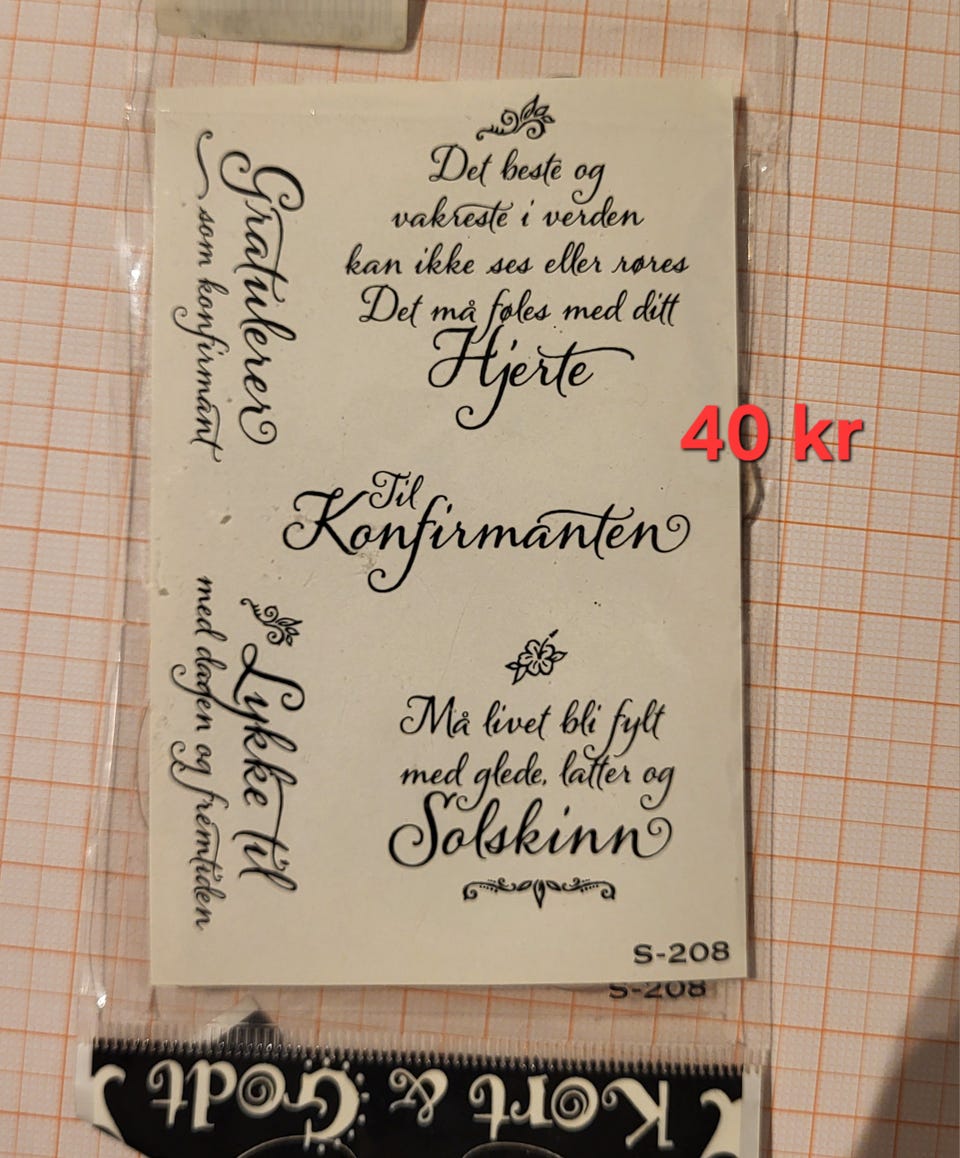 Det beste og
vakreste i verden
kan ikke ses eller røres
Det må føles med ditt
Hjerte
Gratulerer
som konfirmant
40 kr
Til
Konfirmanten
Lykke til
med dagen og fremtiden
Må livet bli fylt
med glede, latter og
Solskinn
S-208
S-208
Kort & Godt